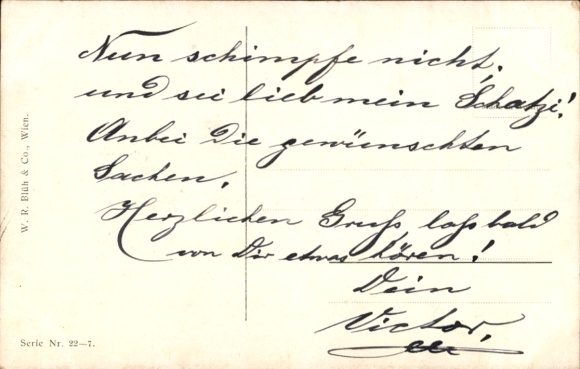 Nun schimpfe nicht,
und sei lieb mein Schatzi!
Anbei die gewünschten
Sachen.
Herzlichen Gruß laß bald
von Dir etwas hören!
Dein
Victor.
W. R. Blüh & Co., Wien.
Serie Nr. 22—7.